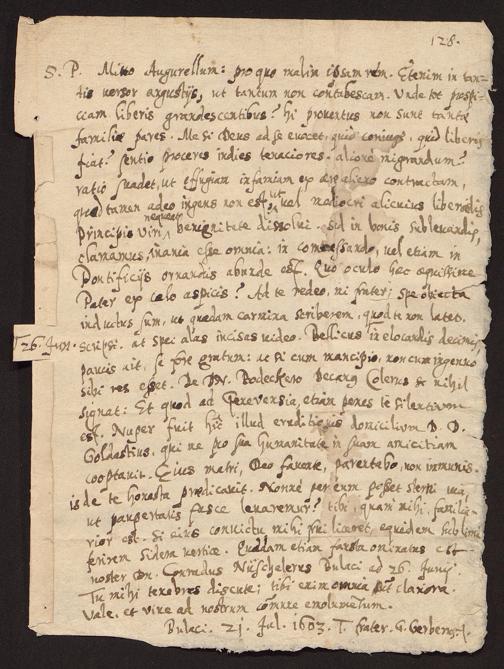 128.
S. P. Mitto Augurellum: pro quo malim ipsam rem. Etenim in tan-
tis versor angustijs, ut tantum non contabescam. Unde tot prospi-
ciam liberis grandescentibus? hi proventus non sunt tantæ
familiæ pares. Me si Deus ad se evocet, quid coniugi, quid liberis
fiat? sentio proceres indies tenaciores. alione migrandum?
ratio suadet, ut effugiam infamiam ex ære alieno contractam,
quod tamen adeo ingens non est, ut vel mediocri alicuius liberalis
Principis viri nequeat benignitate dissolvi. Sed in bonis sublevandis,
clamamus, inania esse omnia: in comessando, vel etiam in
Pontificijs ornandis abunde est. Quo oculo hæc æquissime
Pater ex cælo aspicis? Ad te redeo, mi frater; spe obiecta
inductus sum, ut quædam carmina scriberem, quod te non latet.
26. Jun. Scripsi. at spei alas incisas video. Bellicus in elocandis decimis
paucis ait, se fore gratum: ut si cum mancipio, non cum ingenuo
sibi res esset. De DN. Bodeckero Decanus Colerus nihil
signat: Et quod ad Gereversia, etiam penes te silentium
est. Nuper fuit hic illud eruditionis domicilium D. D.
Goldastius, qui me pro sua humanitate in suam amicitiam
cooptavit. Eius matri, Deo favente, parentabo, non immunis.
is de te honesta prædicavit. Nonne per eum posset sterni via,
ut paupertatis fasce levaremur? tibi, quam mihi, familia-
rior est. Si eius convictu mihi frui liceret, equidem sublimi
ferirem sidera vertice. Quædam etiam fausta ominatus est
noster Dn. Conradus Nüschelerus Bulaci ad 26. Junij
Tu mihi tenebras discute; tibi enim omnia sunt clariora.
Vale, et vive ad nostrum commune emolumentum.
Bulaci. 21. Jul. 1603. T. frater. G. Gerberg.